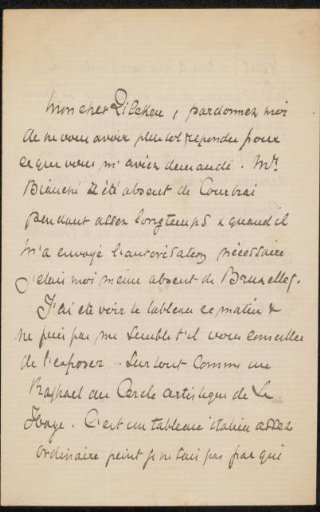 Mon cher Zilcken, pardonnez moi
de ne vous avoir plus tot repondu pour
ce que vous m'aviez demandé. Mr.
Bianchi a été absent de Courtrai
pendant assez longtemps & quand il
m'a envoyé l'autorisation nécessaire
j'étais moi même absent de Bruxelles.
J'ai été voir le tableau ce matin &
ne puis pas me semble t'il vous conseiller
de l'exposer. Surtout comme un
Raphael au Cercle artistique de La
Haye. C'est un tableau italien assez
ordinaire peint je ne sais pas par qui